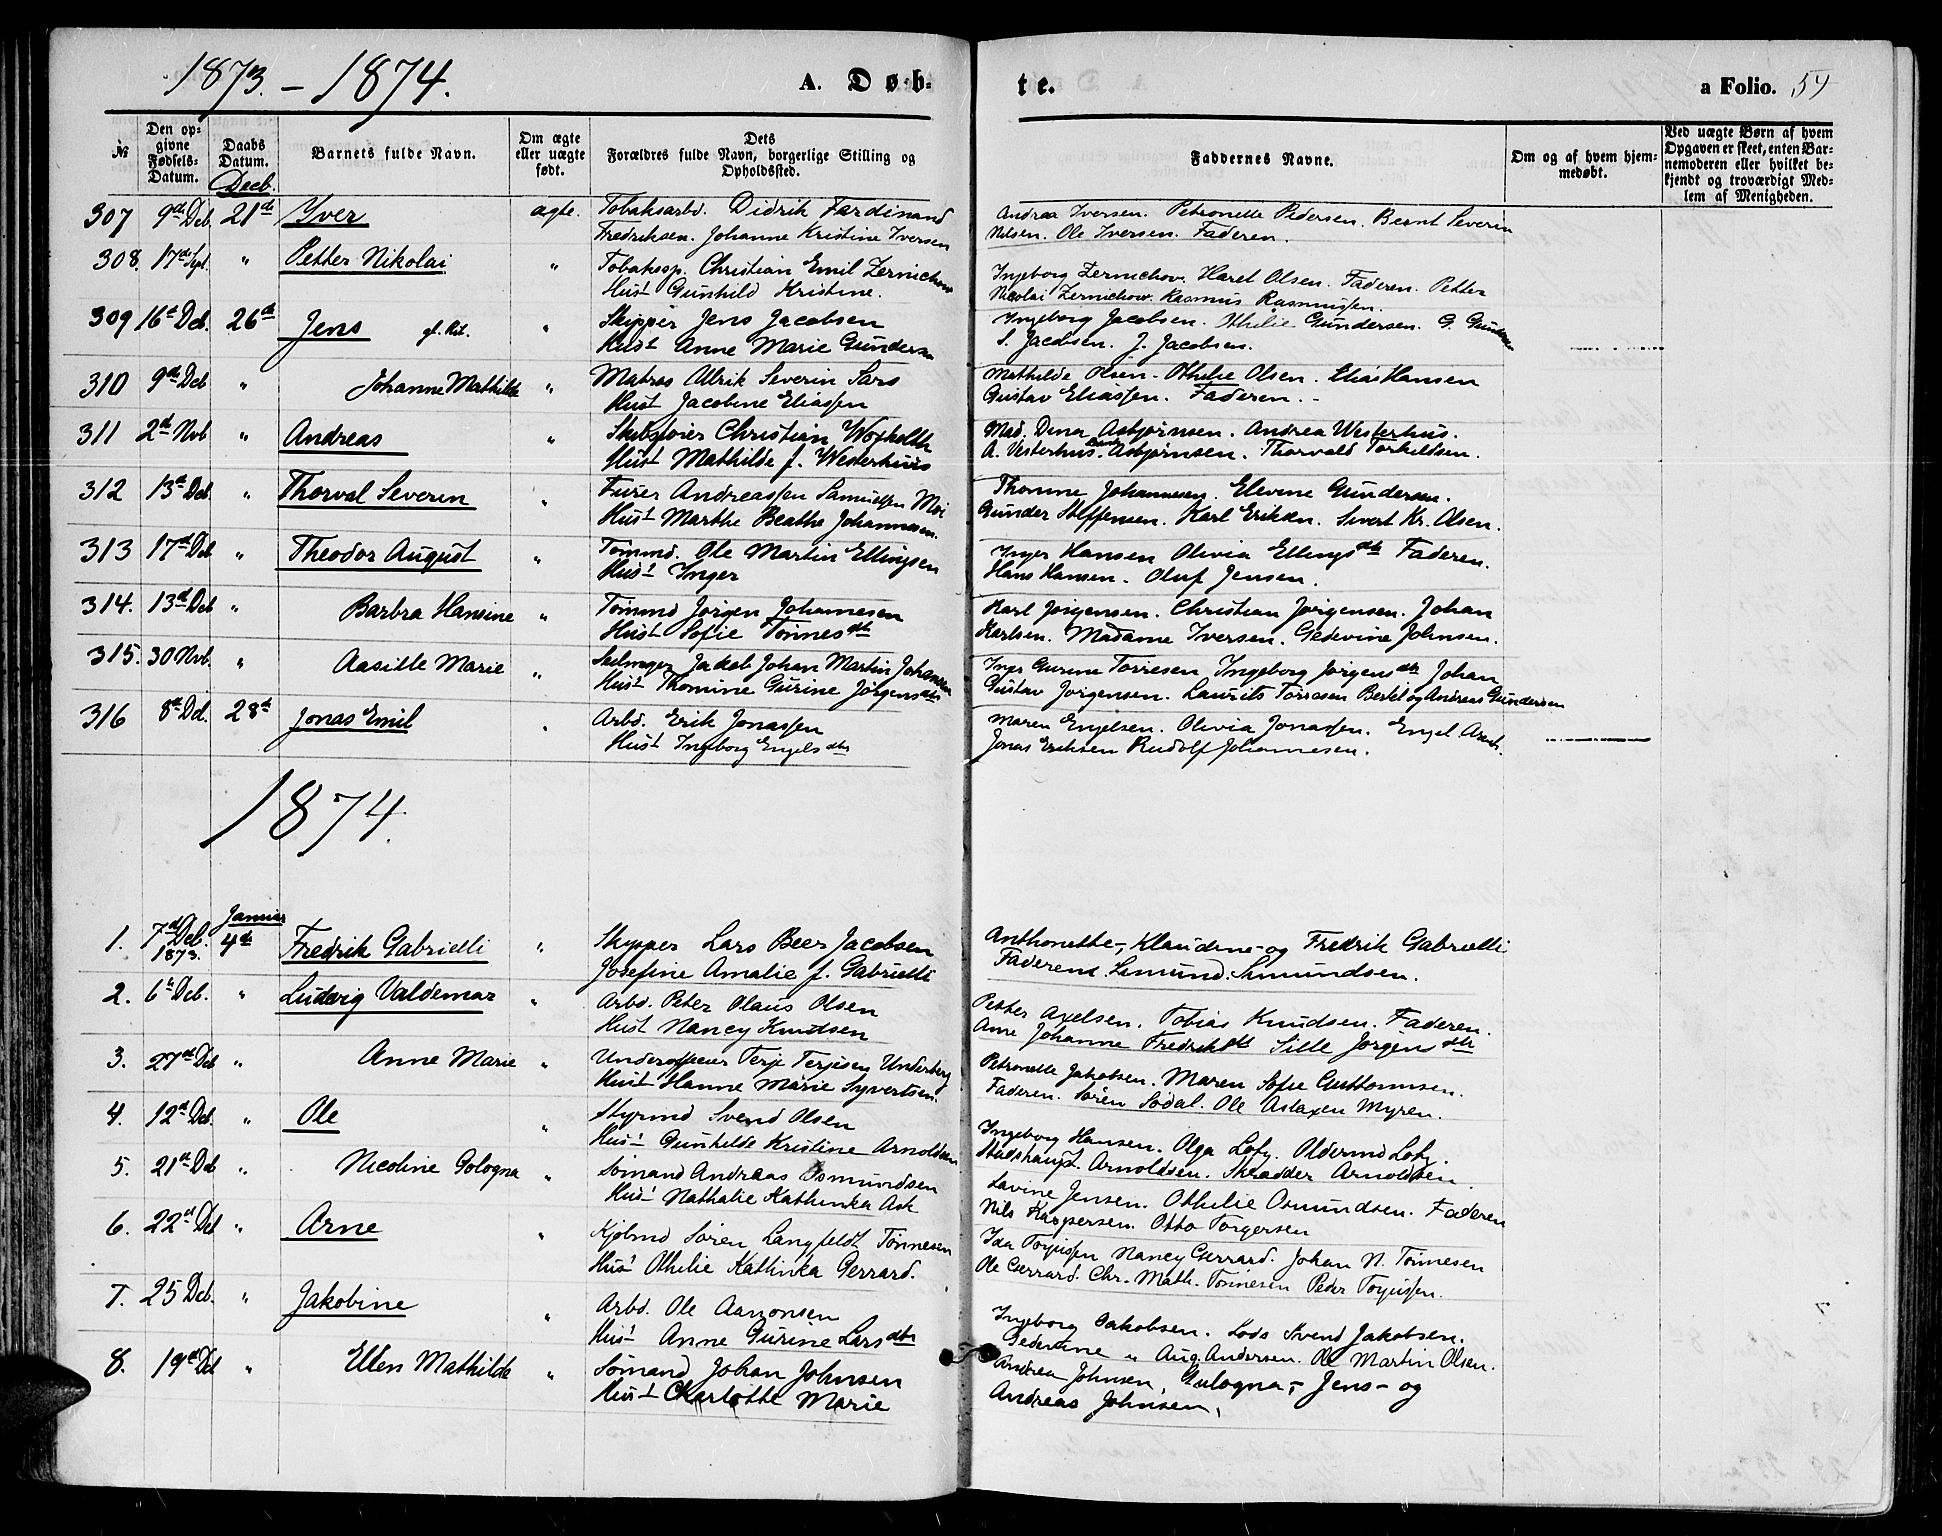 1873. - 1874.
A. Døb-
te.
a Folio. 54
№
Den op-
givne
Fødsels-
Datum.
Daabs
Datum.
Decb.
Barnets fulde Navn.
Om ægte
eller uægte
født.
Dets
Forældres fulde Navn, borgerlige Stilling og
Opholdssted.
Faddernes Navne.
Om og af hvem hjem-
medøbt.
Ved uægte Børn af hvem
Opgaven er skeet, enten Bar-
nemoderen eller hvilket be-
kjendt og troværdigt Med-
lem af Menigheden.
307 9de Deb 21de Yver ægte. Tobaksarbd. Didrik Ferdinand
Fredriksen. Johanne Kristine Iversen
Andrea Iversen. Petronelle Pedersen. Bernt Severin
Nilsen. Ole Iversen. Faderen.
308. 17de Spt. " Petter Nikolai " Tobakssp. Christian Emil Zernichow
Hust Gunhild Kristine.
Ingeborg Zernichow. Haret Olsen. Faderen. Petter
Nicolai Zernichow. Rasmus Rasmussen.
309 16de Deb. 26de Jens " Skipper Jens Jacobsen
Hust Anne Marie Gundersen
Ingeborg Jacobsen. Othelie Gundersen. G. Gundersen
S. Jacobsen. J. Jacobsen.
310 9de Deb " Johanne Mathilde " Matros Alrik Severin Sars
Hust Jacobine Eliassen
Mathilde Olsen - Othelie Olsen. Elias Hansen
Gustav Eliassen. Faderen. -
311 2de Nvb " Andreas " Christian Woxholth
Hust Mathilde f. Westerhuus
Mad. Dina Asbjørnsen. Andrea Westerhus.
A. Vesterhus. Asbjørnsen. Thorvald Torkildsen.
312 13de Deb. " Thorval Severin " Furer Andreassen Samuelsen Moi
Hust Marthe Beathe Johannesen.
Thomine Johannesen. Elevine Gundersen.
Gunder Steffensen. Karl Eriksen. Sivert Kr. Olsen.
313 17de Deb " Theodor August " Tømmd. Ole Martin Ellingsen
Hust Inger
Inger Hansen Olivia Ellingsdtr Faderen.
Hans Hansen. Oluf Jensen.
314. 13de Deb " Barbra Hansine " Tømmd Jørgen Johannesen
Hust Sofie Tønnesdtr
Karl Jørgensen. Christian Jørgensen. Johan
Karlsen. Madame Iversen. Gedevine Johnsen.
315. 30 Nvb. " Aasille Marie " Seilmager Jakob Johan Martin Johansen
Hust Thomine Gurine Jørgensdtr
Inger Gurine Torresen Ingeborg Jørgensdtr Johan
Gustav Jørgensen. Laurits Torresen Bertel og Andreas Gundersen
316 8de Deb. 28de Jonas Emil " Arbd. Erik Jonassen
Hust Ingeborg Engelsdtr
Maren Engelsen. Olivia Jonassen. Engel
Jonas Eriksen Rudolf Johannesen.
1874.
Januar
1. 7de Deb. 1873. 4de Fredrik Gabrielli " Skipper Lars Beer Jacobsen
Josefine Amalie f. Gabrielli
Anthonette-, Klaudine- og Fredrik Gabrielli
Faderen Simund. Simundsen.
2. 6te Deb. " Ludvig Valdemar " Arbd. Peter Olaus Olsen
Hust Nancy Knudsen
Petter Axelsen. Tobias Knudsen. Faderen.
Ane Johanne Fredriksdtr Sille Jørgensdtr
3. 27de Deb " Anne Marie " Underofficier Terje Terjesen Underberg
Hust Hanne Marie Syvertsen.
Petronelle Jakobsen. Maren Sofie Guttormsen.
Faderen. Søren Sødal. Ole Aslaxen Myren.
4. 12de Deb. " Ole " Styrmd Svend Olsen
Hust Gunhilde Kristine Arnoldsen
Ingeborg Hansen. Olga Lofy. Oldermd Lofy.
Stadshaupt. Arnoldsen. Skrædder Arnoldsen.
5. 21de Deb " Nicoline Gologna " Sømand Andreas Osmundsen
Hust Nathalie Kathinka Ask
Lavine Jensen. Othelie Osmundsen. Faderen
Nils Kaspersen. Otto Torgersen
6. 22de Deb " Arne " Kjøbmd Søren Langfeldt Tønnesen
Hust Othelie Kathinka Gerrard.
Ida Torjussen Nancy Gerrard. Johan N. Tønnesen
Ole Gerrard. Chr. Math. Tønnesen Peder Torjussen.
7. 25 Deb. " Jakobine " Arbd. Ole Aanonsen
Hust Anne Gurine Larsdtr
Ingeborg Jakobsen. Lods Svend Jakobsen.
Gedevine " Aug. Andersen. Ole Martin Olsen.
8. 19de Deb " Ellen Mathilde " Sømand Johan Johnsen
Hust Charlotte Marie
Andrea Johnsen, Gulogna-, Jens- og
Andreas Johnsen,